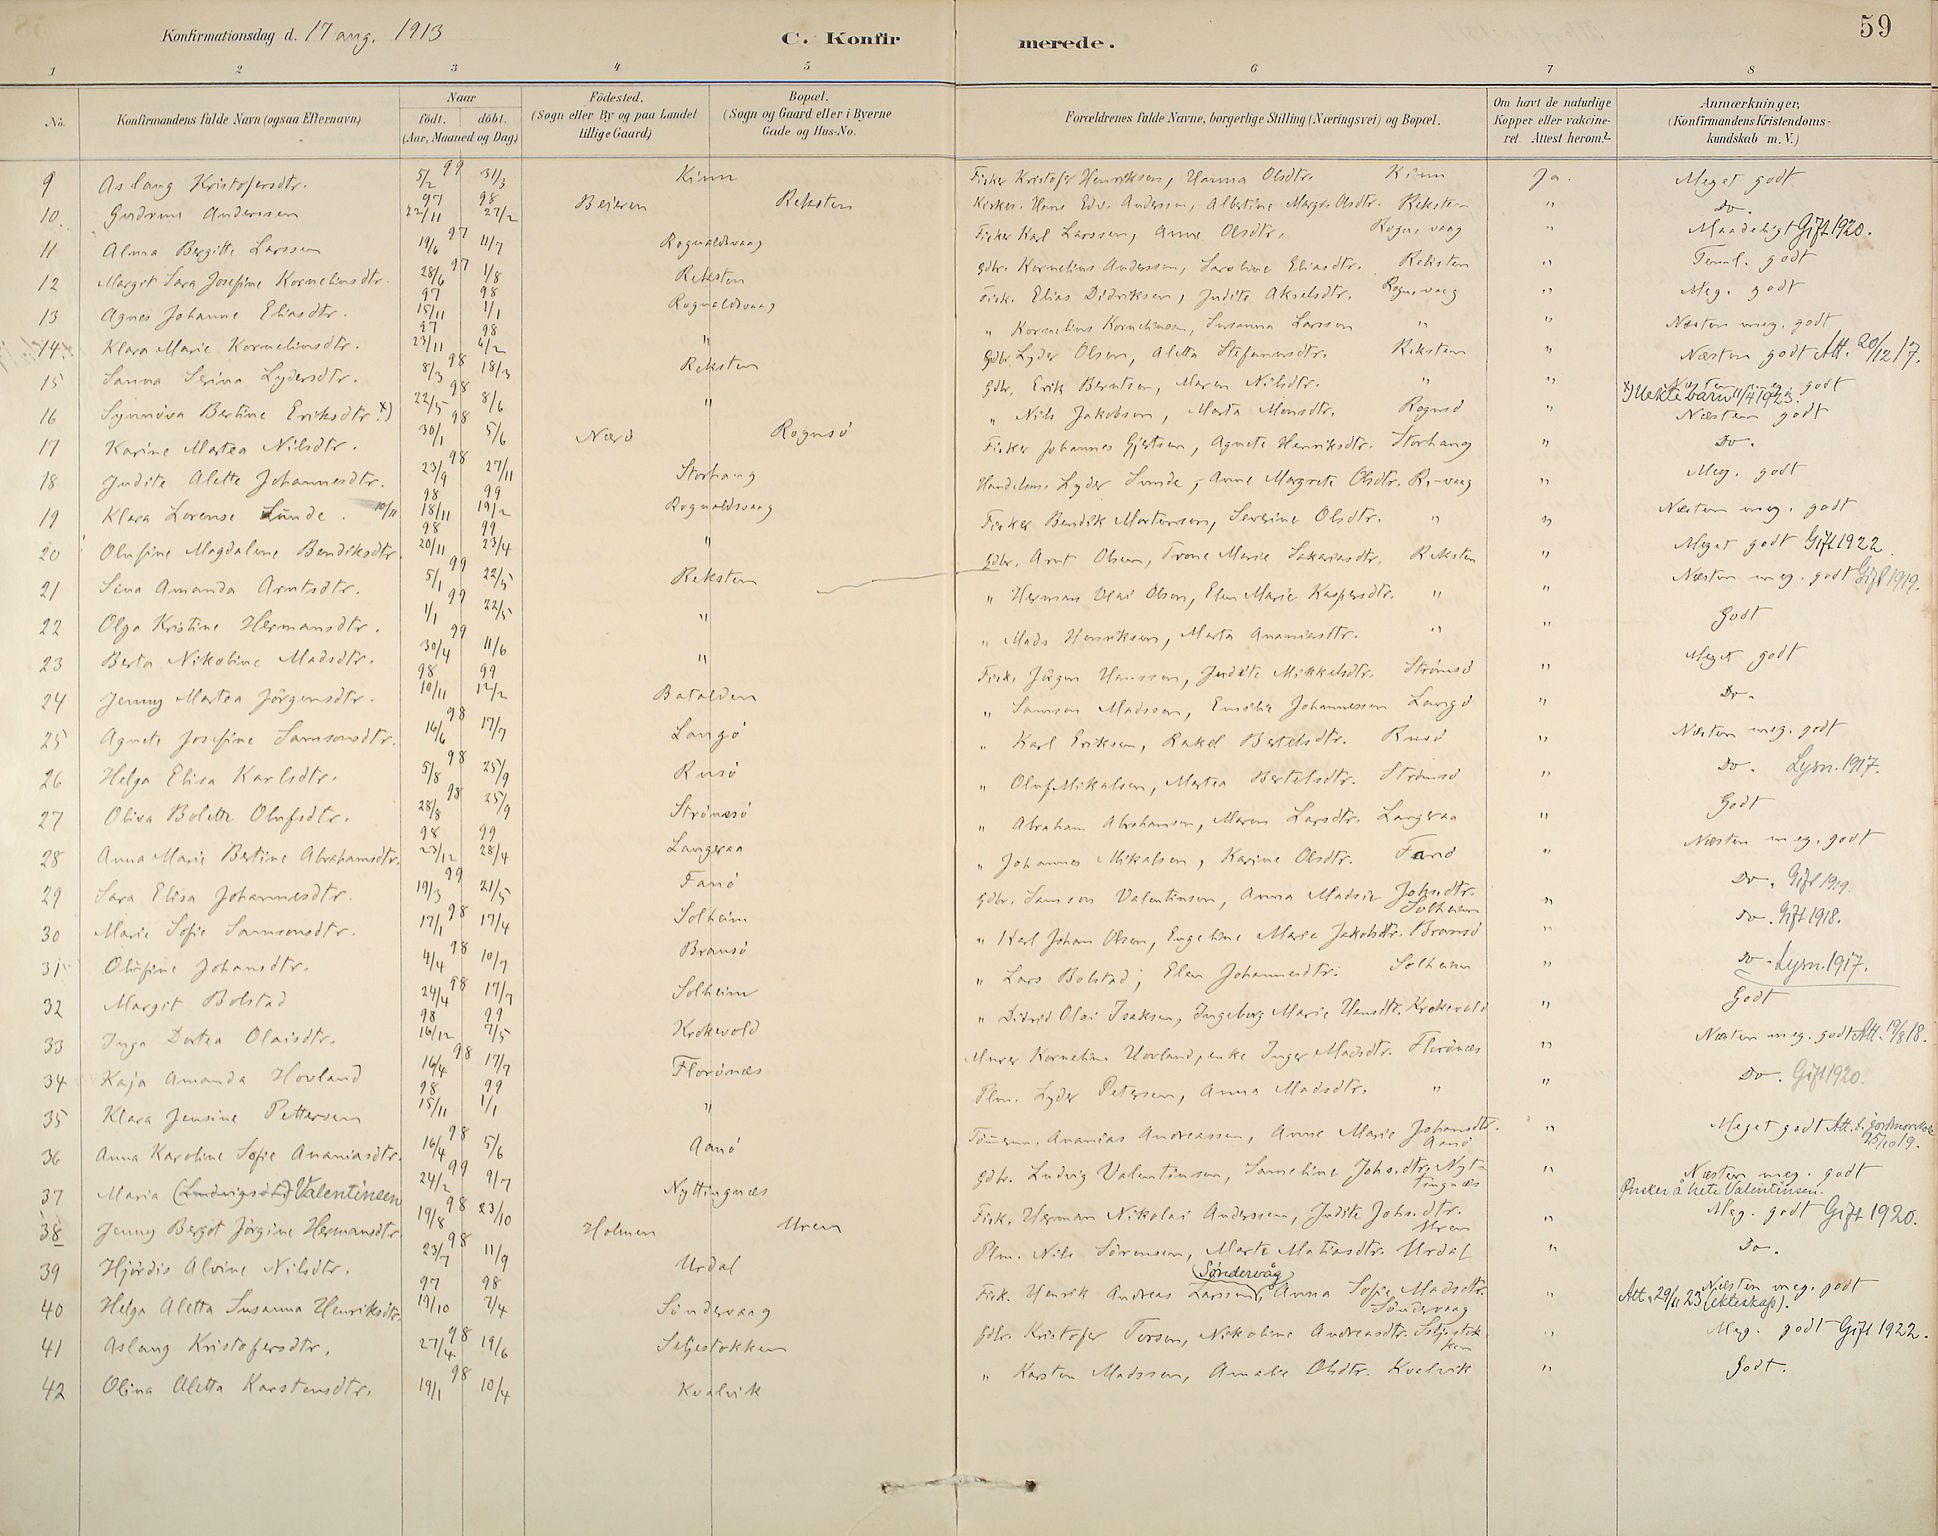 Konfirmationsdag d. 17 aug. 1913 C. Konfir merede. 59
1 2 3 4 5 6 7 8
No. Konfirmandens fulde Navn (ogsaa Efternavn) Naar födt. döbt. (Aar, Maaned og Dag) Födested. (Sogn eller By og paa Landet tillige Gaard) Bopæl. (Sogn og Gaard eller i Byerne Gade og Hus-No. Forældrenes fulde Navne, borgerlige Stilling (Næringsvei) og Bopæl. Om havt de naturlige Kopper eller vakcineret. Attest herom? Anmærkninger, (Konfirmandens Kristendomskundskab m. V.)
9 Aslaug Kristofersdtr. 5/2 99 31/3 Kinn Fisker Kristofer Henriksen, Hanna Olsdtr. Kinn Ja. Meget godt
10. Gudrun Anderssen 97 22/11 98 27/2 Beieren Reksten Kirkes. Hans Edv. Anderssen, Albertine Margr. Olsdtr. Reksten " Do.
11 Alma Bergitte Larssen 19/6 97 11/7 Rognaldsvaag Fisker Karl Larssen, Anne Olsdtr. Rogns vaag " Maadeligt Gift 1920.
12 Margit Sara Josefine Korneliusdtr. 28/6 97 1/8 Reksten Gdbr. Kornelius Anderssen, Saroline Eliasdtr. Reksten " Teml. godt
13 Agnes Johanne Eliasdtr. 97 15/11 98 1/1 Rognaldsvaag Fisk. Elias Didriksen, Judite Akselsdtr. Rogns vaag " Meg. godt
14 Klara Marie Korneliusdtr. 97 23/11 98 6/2 " " Kornelius Korneliussen, Susanna Larssen " " Næsten meg. godt
15 Sanna Serina Lydersdtr. 8/3 98 18/3 Reksten Gdbr. Lyder Olsen, Aletta Stefanusdtr. Reksten " Næsten godt Att. 20/12 17.
16 Synnöva Bertine Eriksdtr. x) 22/5 98 8/6 " Gdbr. Erik Berntsen, Maren Nilsdtr. " " Næsten meg. godt
x) Uekte barn 11/4 1923.
17 Karine Martea Nilsdtr. 30/1 98 5/6 Nærö Rognsö " Nils Jakobsen, Marta Monsdtr. Rognsö " Næsten godt
18 Judite Alette Johannesdtr. 23/9 98 27/11 Storhaug Fisker Johannes Gjertsen, Agnete Henriksdtr. Storhaug " Do.
19 Klara Lorense Lunde. 10/11 98 18/11 99 19/2 Rognaldsvaag Handelsm. Lyder Lunde, Anne Margrete Olsdtr. R.-vaag " Meg. godt
20 Olufine Magdalene Bendiksdtr. 98 20/11 99 23/4 " Fisker Bendik Mortensen, Severine Olsdtr. " " Næsten meg. godt
21 Sina Amanda Arntsdtr. 5/1 99 22/5 Reksten Gdbr. Arnt Olsen, Trone Marie Sakariasdtr. Reksten " Meget godt Gift 1922.
22 Olga Kristine Hermansdtr. 1/1 99 22/5 " " Herman Olai Olsen, Elen Marie Kaspersdtr. " " Næsten meg. godt Gift 1919.
23 Berta Nikoline Madsdtr. 30/4 99 11/6 " " Mads Henriksen, Marta Ananiasdtr. " " Godt
24 Jenny Martea Jörgensdtr. 98 10/11 99 12/2 Batalden Fisk. Jörgen Hanssen, Judite Mikkelsdtr. Strömsö " Meget godt
25 Agnete Josefine Samsonsdtr. 16/6 98 17/7 Langö " Samson Madssen, Emilie Johannessen Langö " Do.
26 Helga Elisa Karlsdtr. 5/8 98 25/9 Rusö " Karl Eriksen, Rakel Bertelsdtr. Rusö " Næsten meg. godt
27 Oliva Bolette Olufsdtr. 28/8 98 25/9 Strömsö " Oluf Mikalsen, Martea Bertelsdtr. Strömsö " Do. Lysn. 1917.
28 Anna Marie Bertine Abrahamsdtr. 98 23/12 99 28/4 Langeraa " Abraham Abrahamsen, Maren Larsdtr. Langeraa " Godt
29 Sara Elisa Johannesdtr. 19/3 99 21/5 Fanö " Johannes Mikalsen, Karine Olsdtr. Fanö " Næsten meg. godt
30 Marie Sofie Samsonsdtr. 17/1 98 17/4 Solheim Gdbr. Samson Valentinsen, Anna Madsie Johs.dtr. Solheim " Do. Gift 1919.
31 Olufine Johansdtr. 4/4 98 10/7 Bransö " Karl Johan Olsen, Engeline Marie Jakobsdtr. Bransö " Do. Gift 1918.
32 Margit Bolstad 24/4 98 17/7 Solheim " Lars Bolstad, Elen Johannesdtr. Solheim " Do. Lysn. 1917.
33 Inga Dortea Olaisdtr. 98 16/12 99 7/5 Krokevold " Didrid Olai Isaksen, Ingeborg Marie Hansdtr. Krokevold " Godt
34 Kaja Amanda Hovland 16/4 98 17/7 Florönæs Murer Kornelius Hovland, enke Inger Madsdtr. Florönæs " Næsten meg. godt Att. 19/8 18.
35 Klara Jensine Pettersen 98 15/11 99 1/1 " Plm. Lyder Petersen, Anna Madsdtr. " " Do. Gift 1920.
36 Anna Karoline Sofie Ananiasdtr. 16/4 98 5/6 Aanö Tömmerm. Ananias Andreassen, Anne Marie Johansdtr. Aanö " Meget godt Att. t. jordmorskole 25/10 19.
37 Maria (Ludvigsdtr.) Valentinsen 24/2 99 9/7 Nyttingnæs Gdbr. Ludvig Valentinsen, Sameline Johs.dtr. Nyttingnæs " Næsten meg. godt
Ønsker å hete Valentinsen.
38 Jenny Bergot Jörgine Hermansdtr. 19/8 98 23/10 Holmen Uren Fisk. Herman Nikolai Anderssen, Judite Johs.dtr. Uren " Meg. godt Gift 1920.
39 Hjördis Alvine Nilsdtr. 23/7 98 11/9 Urdal Plm. Nils Sörensen, Marte Matiasdtr. Urdal " Do.
40 Helga Aletta Susanna Henriksdtr. 97 19/10 98 7/4 Söndervaag Fisk. Henrik Andreas Larssen (Søndervåg), Anna Sofie Madsdtr. Söndervaag " Næsten meg. godt
Att. 29/11 23 (ekteskap).
41 Aslaug Kristofersdtr. 27/4 98 19/6 Seljestokken Gdbr. Kristofer Torsen, Nikoline Andreasdtr. Seljestokken " Meg. godt Gift 1922.
42 Olina Aletta Karstensdtr. 19/1 98 10/4 Kvalvik " Karsten Madssen, Amalie Olsdtr. Kvalvik " Godt.